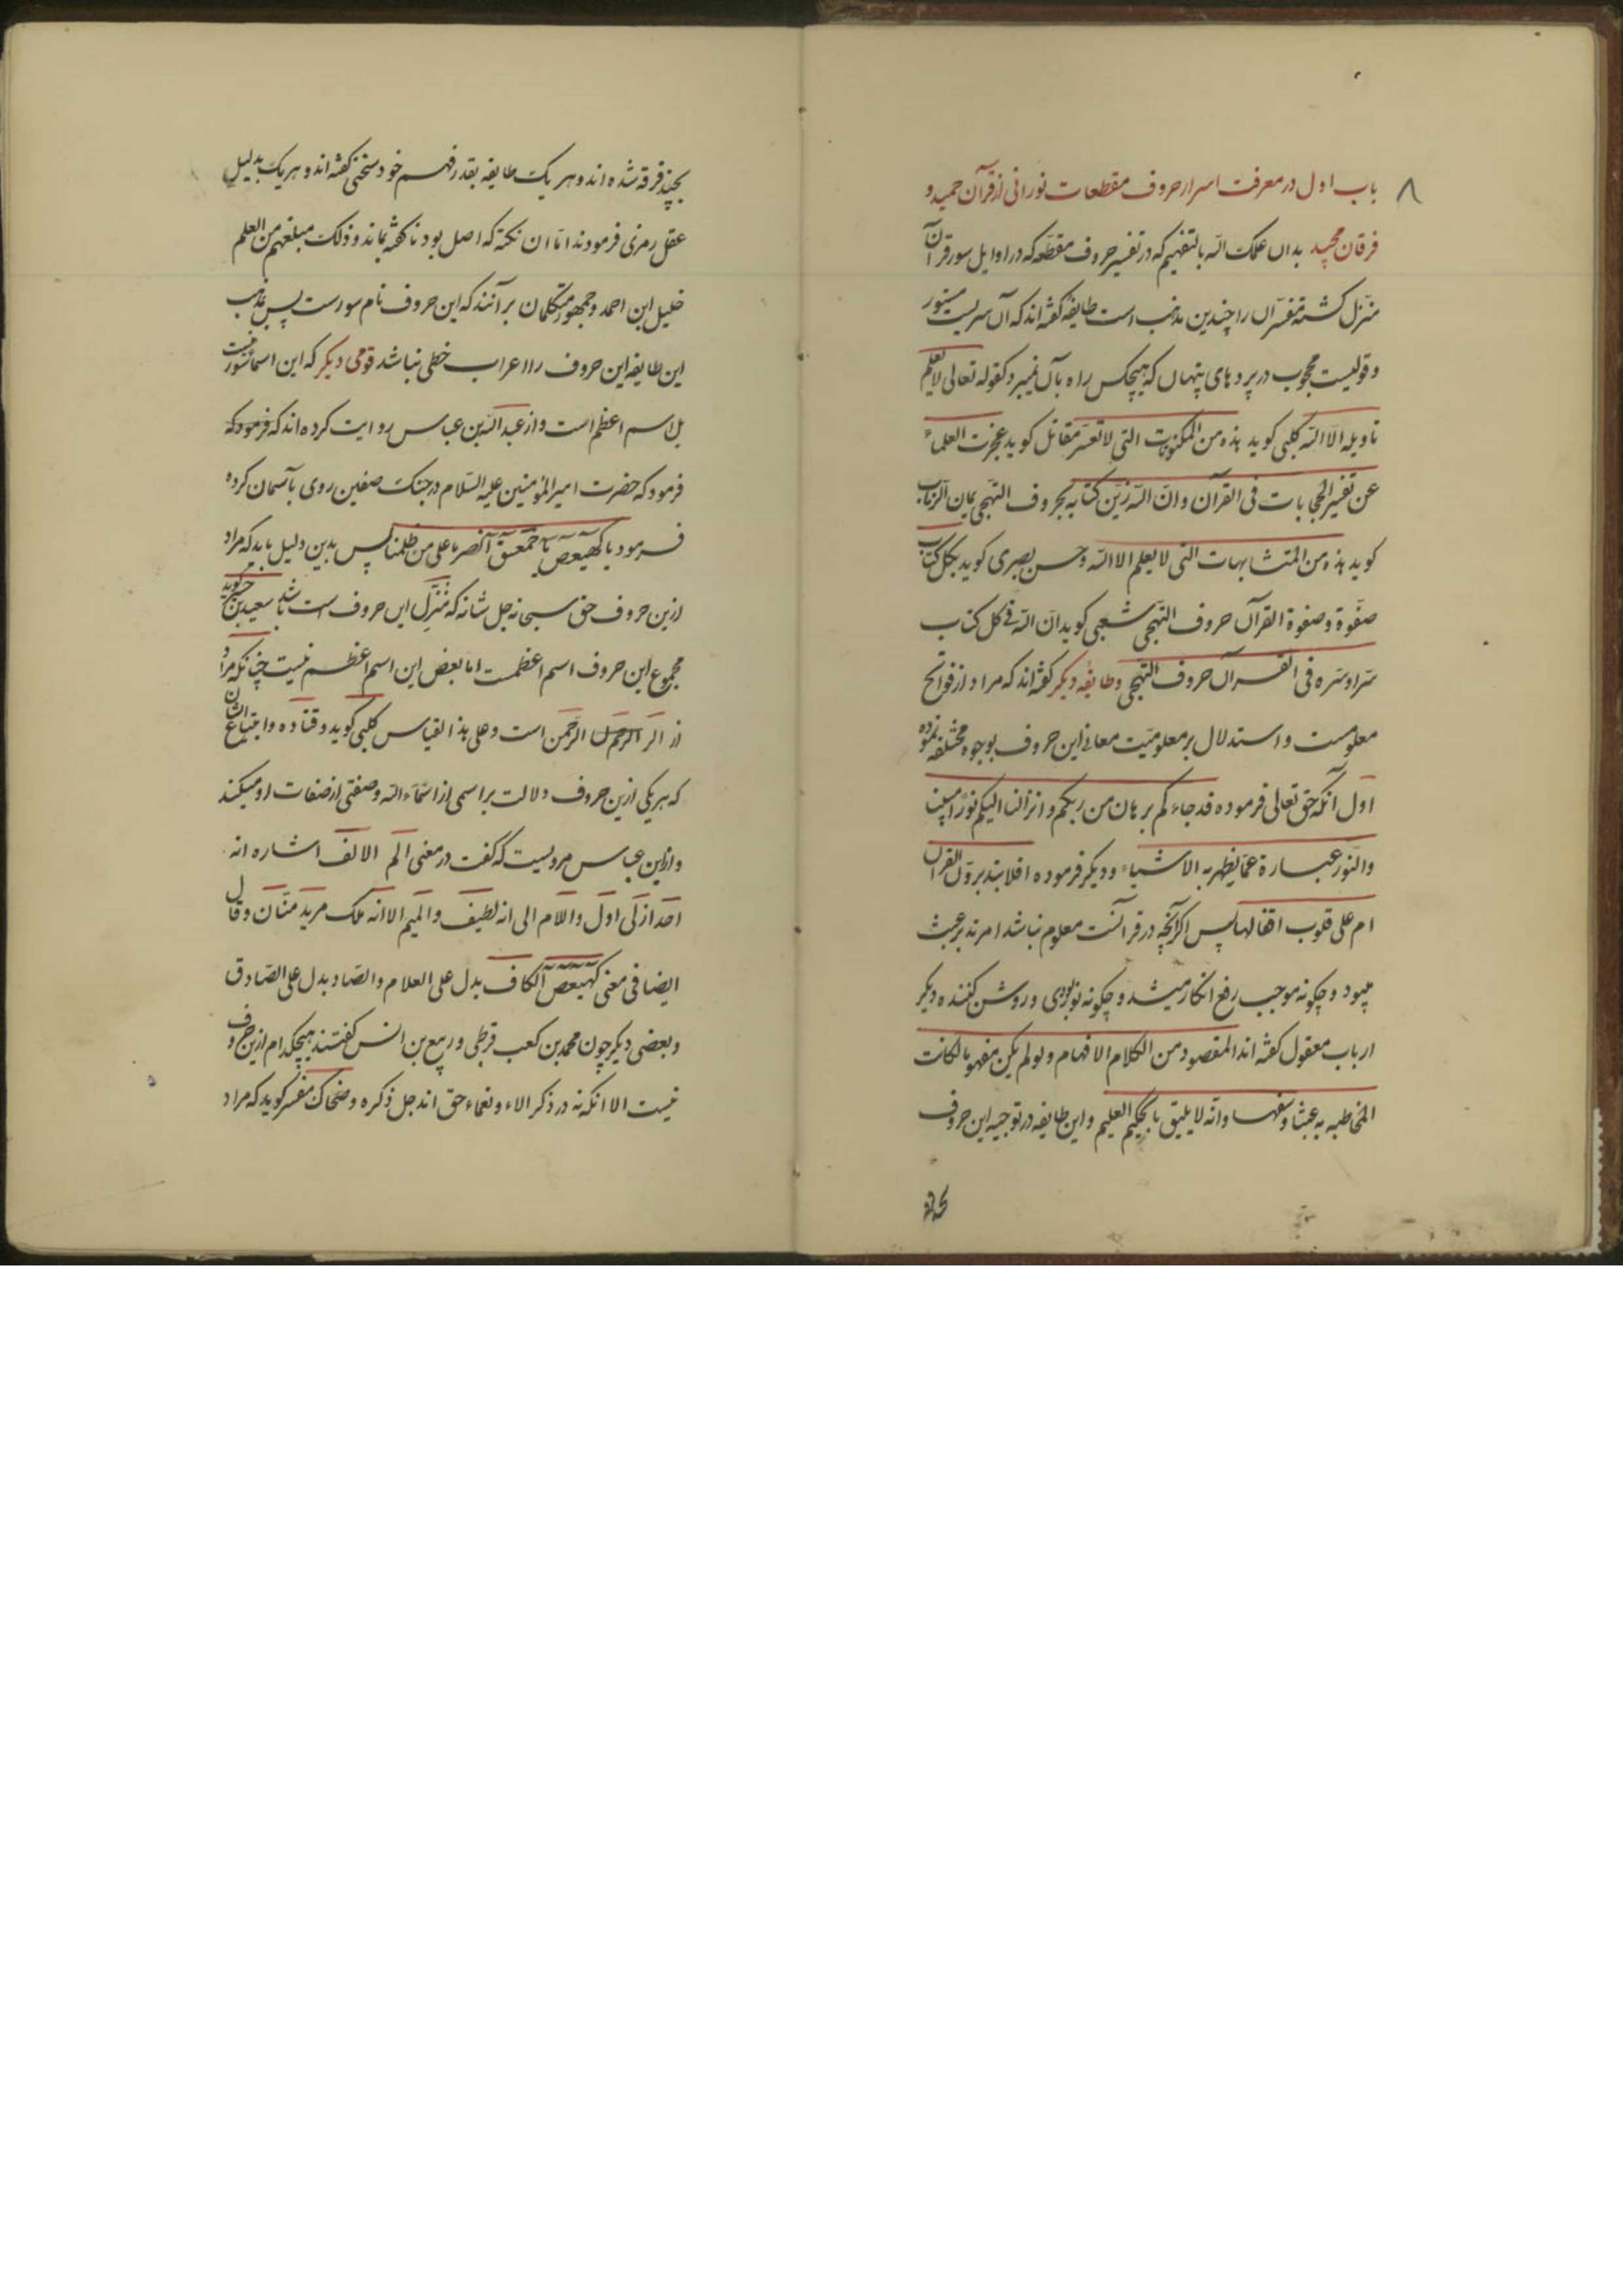 ۸
باب اول در معرفت اسرار حروف مقطعات نورانی از قرآن حمید و
فرقان مجید بدان علمک الله بالتفهیم که در تفسیر حروف مقطعه که در اوایل سور قرآن
منزل کشته مفسران را چندین مذهب است طایفه کفته اند که آن سریست مستور
و قولیست محجوب در پرد های پنهان که هیچکس راه بآن نمیبرد کقوله تعالی لا یعلم
تاویله الا الله کلبی کوید هذه من المکنونات التی لا تفسر مقاتل کوید عجزت العلماء
عن تفسیر الحجابات فی القرآن و ان الله زین کتابه بحروف التهجی یمان الرباب
کوید هذه من المتشابهات التی لا یعلم الا الله و حسن بصری کوید بکل کتاب
صفوة و صفوة القرآن حروف التهجی شعبی کوید ان الله فی کل کتاب
سرا و سره فی القرآن حروف التهجی و طایفه دیکر کفته اند که مراد از فواتح
معلومست و استدلال بر معلومیت معانی این حروف بوجوه مختلفه نموده
اول آنکه حق تعالی فرموده قد جاءکم برهان من ربکم و انزلنا الیکم نورا مبینا
والنور عبارة عما یظهر به الاشیاء و دیکر فرموده افلا یتدبرون القرآن
ام علی قلوب اقفالها پس اکر آنچه در قرآنست معلوم نباشد امر تدبر عبث
میبود و چکونه موجب رفع انکار میشد و چکونه نوربودی و روشن کننده دیکر
ارباب معقول کفته اند المقصود من الکلام الافهام و لو لم یکن مفهوما لکانت
المخاطبه به عبثا و سفها و انه لا یلیق بالحکیم العلیم و این طایفه در توجیه این حروف
بچند فرقه شده اند و هر یک طایفه بقدر فهم خود سخنی کفته اند و هر یک بدلیل
عقل رمزی فرمودند اما ان نکته که اصل بود ناکفته بماند و ذلک مبلغهم من العلم
خلیل ابن احمد و جمهور متکلمان بر آنند که این حروف نام سور است پس بمذهب
این طایفه این حروف را اعراب خطی نباشد قومی دیکر که این اسما سور نیست
بل اسم اعظم است و از عبدالله بن عباس روایت کرده اند که فرمود که
فرمود که حضرت امیرالمؤمنین علیه السلام در جنک صفین روی بآسمان کرده
فرمود یا کهیعص یا حمعسق انصرنا علی من ظلمنا پس بدین دلیل باید که مراد
ازین حروف حق سبحانه جل شانه که منزل این حروف است باشد سعید بن جبیر کوید
مجموع این حروف اسم اعظمست اما بعض این اسم اعظم نیست چنانکه مراد
از الر حم ن الرحمن است و علی هذا القیاس کلبی کوید و قتاده و اتباع ایشان
که هر یکی ازین حروف دلالت بر اسمی از اسماء الله و صفتی از صفات او میکنند
و از ابن عباس مرویست که کفت در معنی الم الالف اشاره انه
احد ازلی اول و اللام الی انه لطیف و المیم الا انه ملک مرید منان و قال
ایضا فی معنی کهیعص الکاف یدل علی العلام و الصاد یدل علی الصادق
و بعضی دیکر چون محمد بن کعب قرظی و ربیع بن انس کفتند هیچکدام ازین حروف
نیست الا انکه نه در ذکر الاء و نعماء حق اند جل ذکره و ضحاک مفسر کوید که مراد